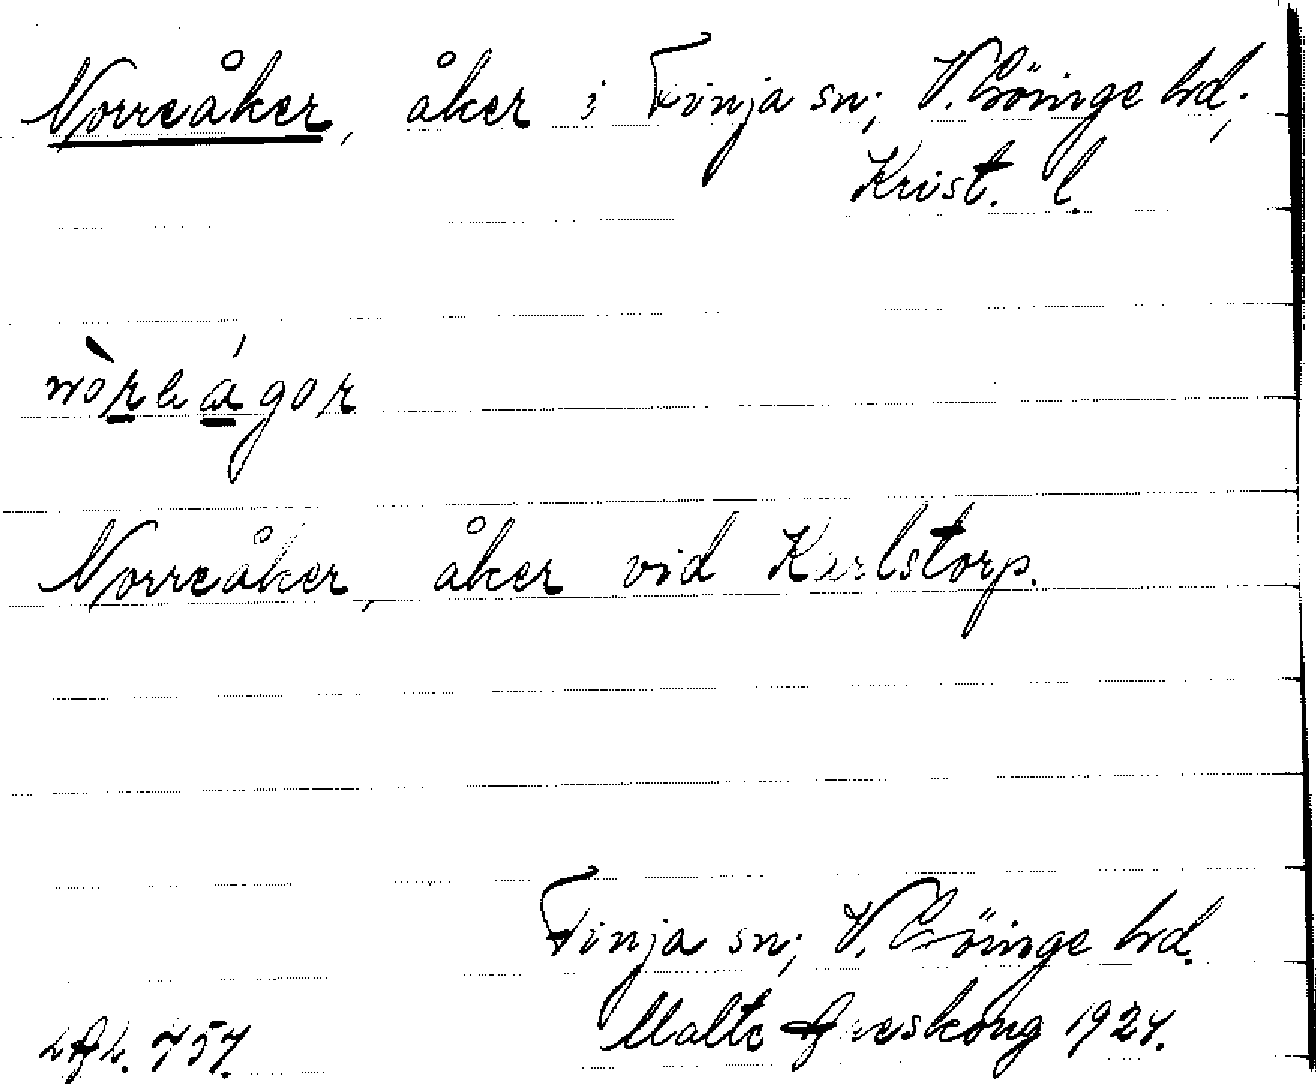 Norreåker, åker i Finja sn; V. Göinge hd;
Krist. l.
Norreåker, åker vid Karlstorp.
Finja sn; V. Göinge hd.
Malte 1927.
757.